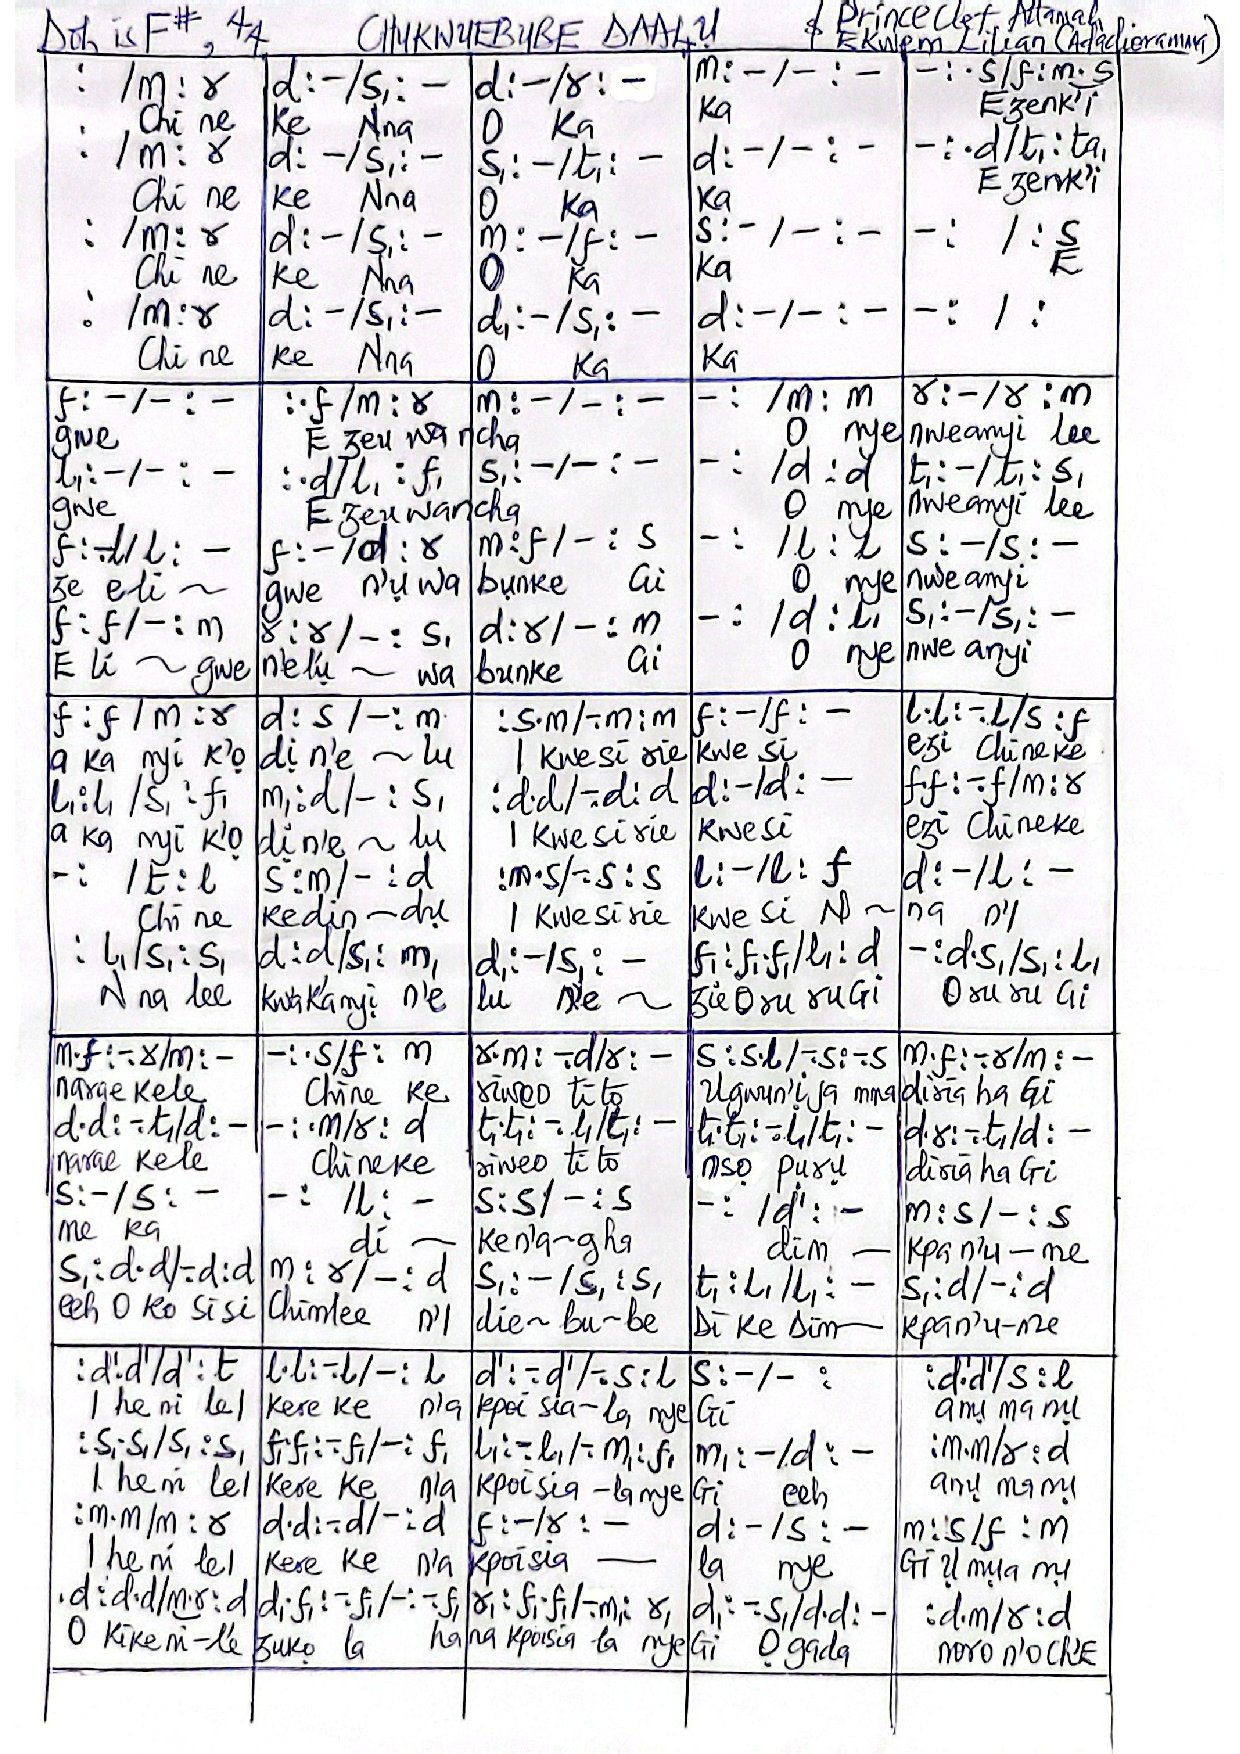 Doh is F#, 4/4 CHUKWUEBUBE DAALỤ & Prince Clef Attamah,
Ekwem Lilian (Adadioramma)
: /m : r d : – /s₁ : – d : – /r : – m : – / – : – – : ·s /f : m·s
Chi ne Ke Nna O Ka Ka E zenk'i
: /m : r d : – /s₁ : – s₁ : – /t₁ : – d : – / – : – – : ·d /t₁ : ta₁
Chi ne Ke Nna O Ka Ka E zenk'i
: /m : r d : – /s₁ : – m : – /f : – s : – / – : – – : / : s
Chi ne Ke Nna O Ka Ka E
: /m : r d : – /s₁ : – d₁ : – /s₁ : – d : – / – : – – : / :
Chi ne Ke Nna O Ka Ka
f : – / – : – : ·f /m : r m : – / – : – – : /m : m r : – /r : m
gwe E zeu wa ncha O nye nweanyi lee
l₁ : – / – : – : ·d /l₁ : f₁ s₁ : – / – : – – : /d : d t₁ : – /t₁ : s₁
gwe E zeu wancha O nye nweanyi lee
f : –·l /l : – f : – /d : r m : f / – : s – : /l : l s : – /s : –
ze eli ~ gwe n'ụ wa bụnke Gi O nye nweanyi
f : f / – : m r : r / – : s₁ d : r / – : m – : /d : l₁ s₁ : – /s₁ : –
E li ~ gwe n'elụ ~ wa bụnke Gi O nye nwe anyi
f : f /m : r d : s / – : m : s·m / –·m : m f : – /f : – l·l : –·l /s : f
a ka nyi k'ọ dị n'e ~ lu I kwe si rie kwe si ezi Chineke
l₁ : l₁ /s₁ : f₁ m₁ : d / – : s₁ : d·d / –·d : d d : – /d : – f·f : –·f /m : r
a ka nyi k'ọ dị n'e ~ lu I kwe si rie kwesi ezi Chineke
– : /t : l s : m / – : d : m·s / –·s : s l : – /l : f d : – /l : –
Chi ne kedin – dụ I kwe si rie kwe si N ~ na n'I
: l₁ /s₁ : s₁ d : d /s₁ : m₁ d₁ : – /s₁ : – f₁ : f₁·f₁ /l₁ : d – : d·s₁ /s₁ : l₁
N na lee kwakanyị n'e lu n'e ~ zie O ru ru Gi O ru ru Gi
m·f : –·r /m : – – : ·s /f : m r·m : –·d /r : – s : s·l / –·s : –·s m·f : –·r /m : –
narae kele Chine ke riweo ti to Ugwun'ị ja mma diriaha Gi
d·d : –·t₁ /d : – – : ·m /r : d t₁·t₁ : –·l₁ /t₁ : – t₁·t₁ : –·l₁ /t₁ : – d·r : –·t₁ /d : –
narae kele Chineke riweo ti to nsọ pụrụ diriaha Gi
s : – /s : – – : /l : – s : s / – : s – : /d' : – m : s / – : s
me ka di ~ ken'a~gha dim — kpa n'u – me
s₁ : d·d / –·d : d m : r / – : d s₁ : – /s₁ : s₁ t₁ : l₁ /l₁ : – s₁ : d / – : d
eeh O ko si si Chimlee n'I die~ bu~be Di ke Dim — kpan'u-me
: d'·d' /d' : t l·l : –·l / – : l d' : –·d' / –·s : l s : – / – : : d·d' /s : l
I he ni le I kere ke n'a kpoi sia–la nye Gi anụ ma nụ
: s₁·s₁ /s₁ : s₁ f₁·f₁ : –·f₁ / – : f₁ l₁ : –·l₁ / –·m₁ : f₁ m₁ : – /d : – : m·m /r : d
I he ni le I kere ke n'a kpoisia –lanye Gi eeh anụ ma nụ
: m·m /m : r d·d : –·d / – : d f : – /r : – d : – /s : – m : s /f : m
I he ni le I kere ke n'a kpoisia — la nye Gi Ụ mụa nụ
·d : d·d /m·r : d d₁·f₁ : –·f₁ / – : –·f₁ r₁ : f₁·f₁ / –·m₁ : r₁ d₁ : –·s₁ /d·d : – : d·m /r : d
O kikeni–le zukọ la ha na kpoisia la nye Gi Ọ gada noro n'och'E